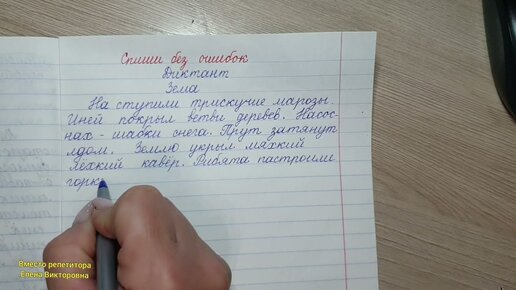 Спиши без ошибок
Диктант
Зема
На ступили трискучие марозы.
Иней покрыл ветви деревев. Насос-
нах - шабки снега. Прут затянут
лдом. Землю укрыл мяхкий
лёхкий кавёр. Рибята пастроили
горк
Вместо репетитора
Елена Викторовна